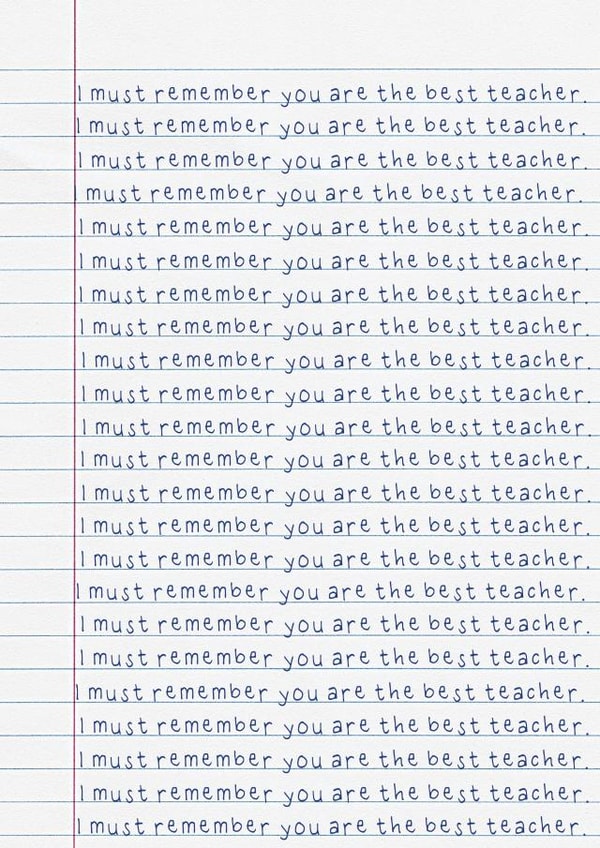 I must remember you are the best teacher.
I must remember you are the best teacher.
I must remember you are the best teacher.
I must remember you are the best teacher.
I must remember you are the best teacher.
I must remember you are the best teacher.
I must remember you are the best teacher.
I must remember you are the best teacher.
I must remember you are the best teacher.
I must remember you are the best teacher.
I must remember you are the best teacher.
I must remember you are the best teacher.
I must remember you are the best teacher.
I must remember you are the best teacher.
I must remember you are the best teacher.
I must remember you are the best teacher.
I must remember you are the best teacher.
I must remember you are the best teacher.
I must remember you are the best teacher.
I must remember you are the best teacher.
I must remember you are the best teacher.
I must remember you are the best teacher.
I must remember you are the best teacher.